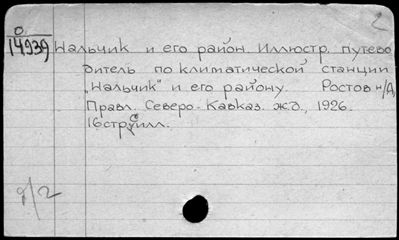 О
14939 Нальчик и его район. Иллюстр. путево
дитель по климатической станции
„Нальчик" и его району. Ростов н/Д
Правл. Северо-Кавказ. ж.д., 1926.
16стр. с илл.